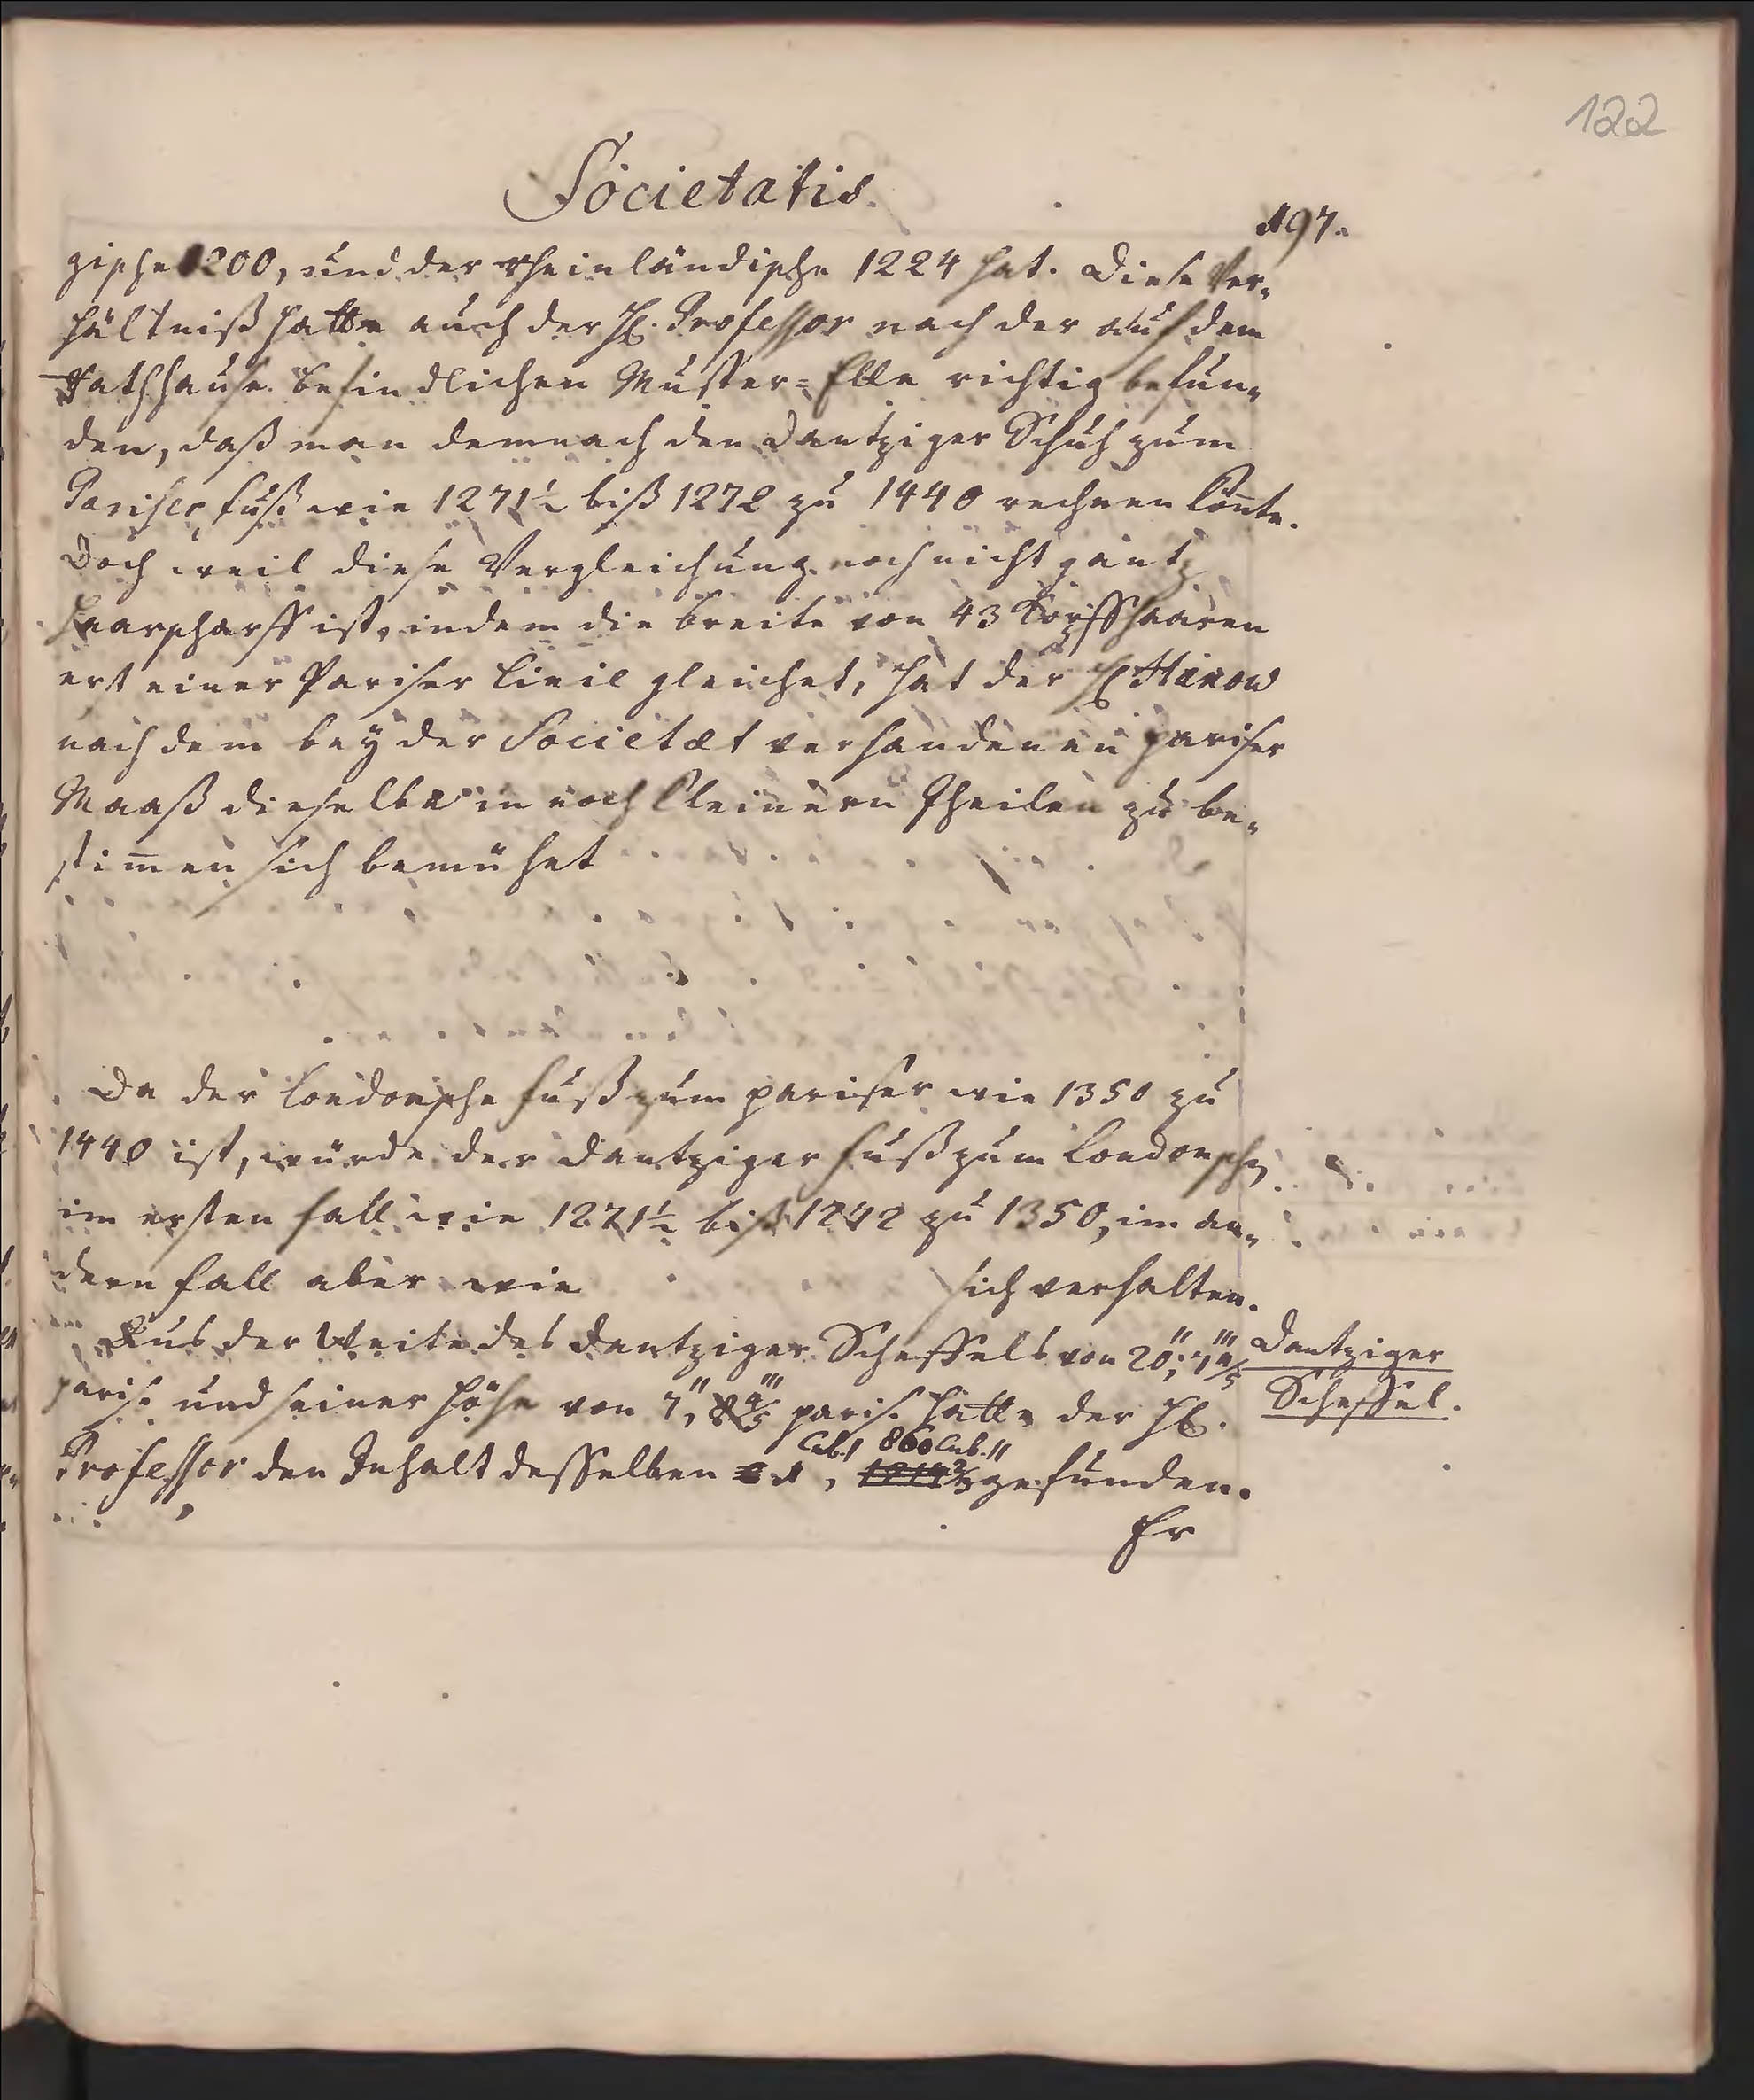 122
Societatis.
197.
zische 1200, und der rheinländische 1224 hat. Diese Ver-
hältniß hatte auch der H. Professor nach der auf dem
Rathhause befindlichen Muster-Elle richtig befun-
den, daß man demnach den Dantziger Schuh zum
Pariser fuß wie 1271½ biß 1272 zu 1440 rechnen könte.
Doch weil diese Vergleichung noch nicht gantz
haarscharff ist, indem die breite von 43 Kopffhaaren
erst einer Pariser Linie gleichet, hat der H Hanow
nach dem bey der Societæt verhandenen pariser
Maaß dieselbe in noch kleinern Theilen zu be-
stim̄en sich bemühet
Da der Londonsche fuß zum pariser wie 1350 zu
1440 ist, würde der dantziger fuß zum Londonschen
im ersten fall wie 1271½ biß 1272 zu 1350, im an-
dern fall aber wie sich verhalten.
Aus der Weite des dantziger Scheffels von 20", 7 4/5'''
Dantziger
Scheffel.
paris. und seiner höhe von 7", 8 4/5''' paris. hatte der H.
Cub.' 860 Cub."
Professor den Inhalt desselben 1, gefunden.
Er